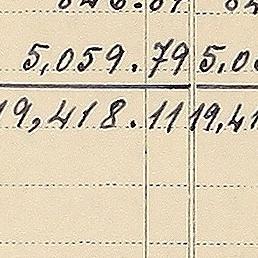 5,059.79 5,0
19,418.11 19,41